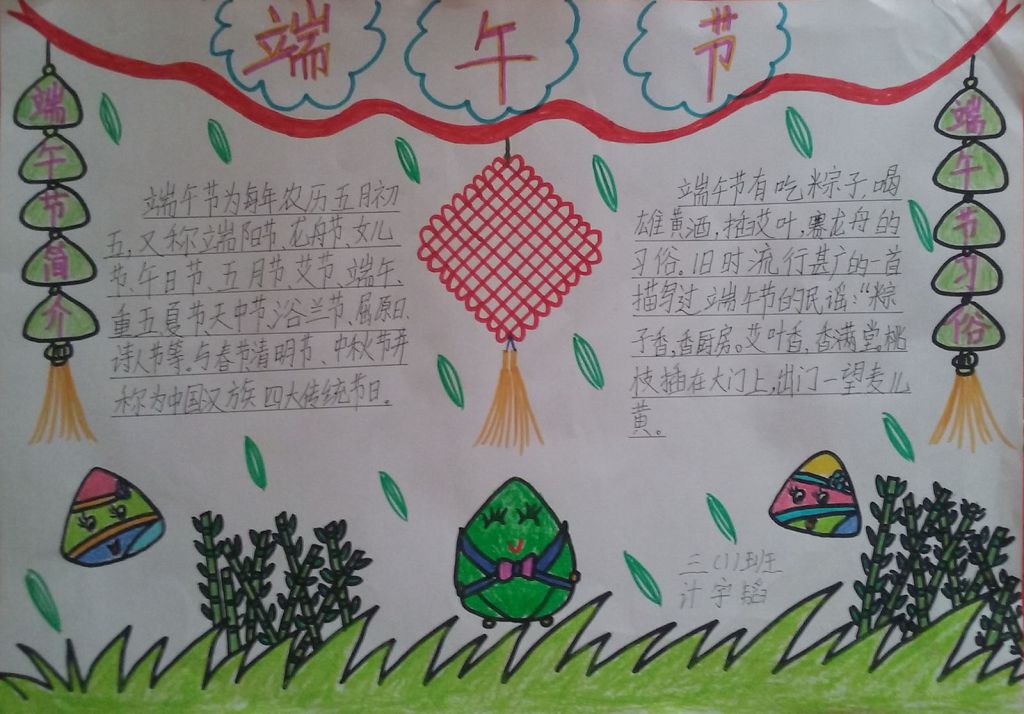 端午节
端午节简介
端午节为每年农历五月初
五，又称端阳节、龙舟节、女儿
节、午日节、五月节、艾节、端午、
重五、夏节天中节、浴兰节、屈原日、
诗人节等。与春节、清明节、中秋节并
称为中国汉族四大传统节日。
端午节习俗
端午节有吃粽子，喝
雄黄酒，插艾叶，赛龙舟的
习俗。旧时流行甚广的一首
描写过端午节的民谣：“粽
子香，香厨房。艾叶香，香满堂。桃
枝插在大门上，出门一望麦儿
黄。
三(1)班
计宇韬